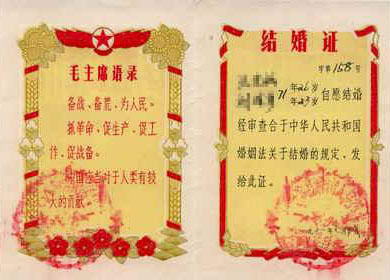 毛主席语录
备战、备荒、为人民。
抓革命，促生产，促工
作，促战备。
中国应当对于人类有较
大的贡献。
结婚证
字第158号
年26岁
71 年23岁 自愿结婚
经审查合于中华人民共和国
婚姻法关于结婚的规定，发
给此证。